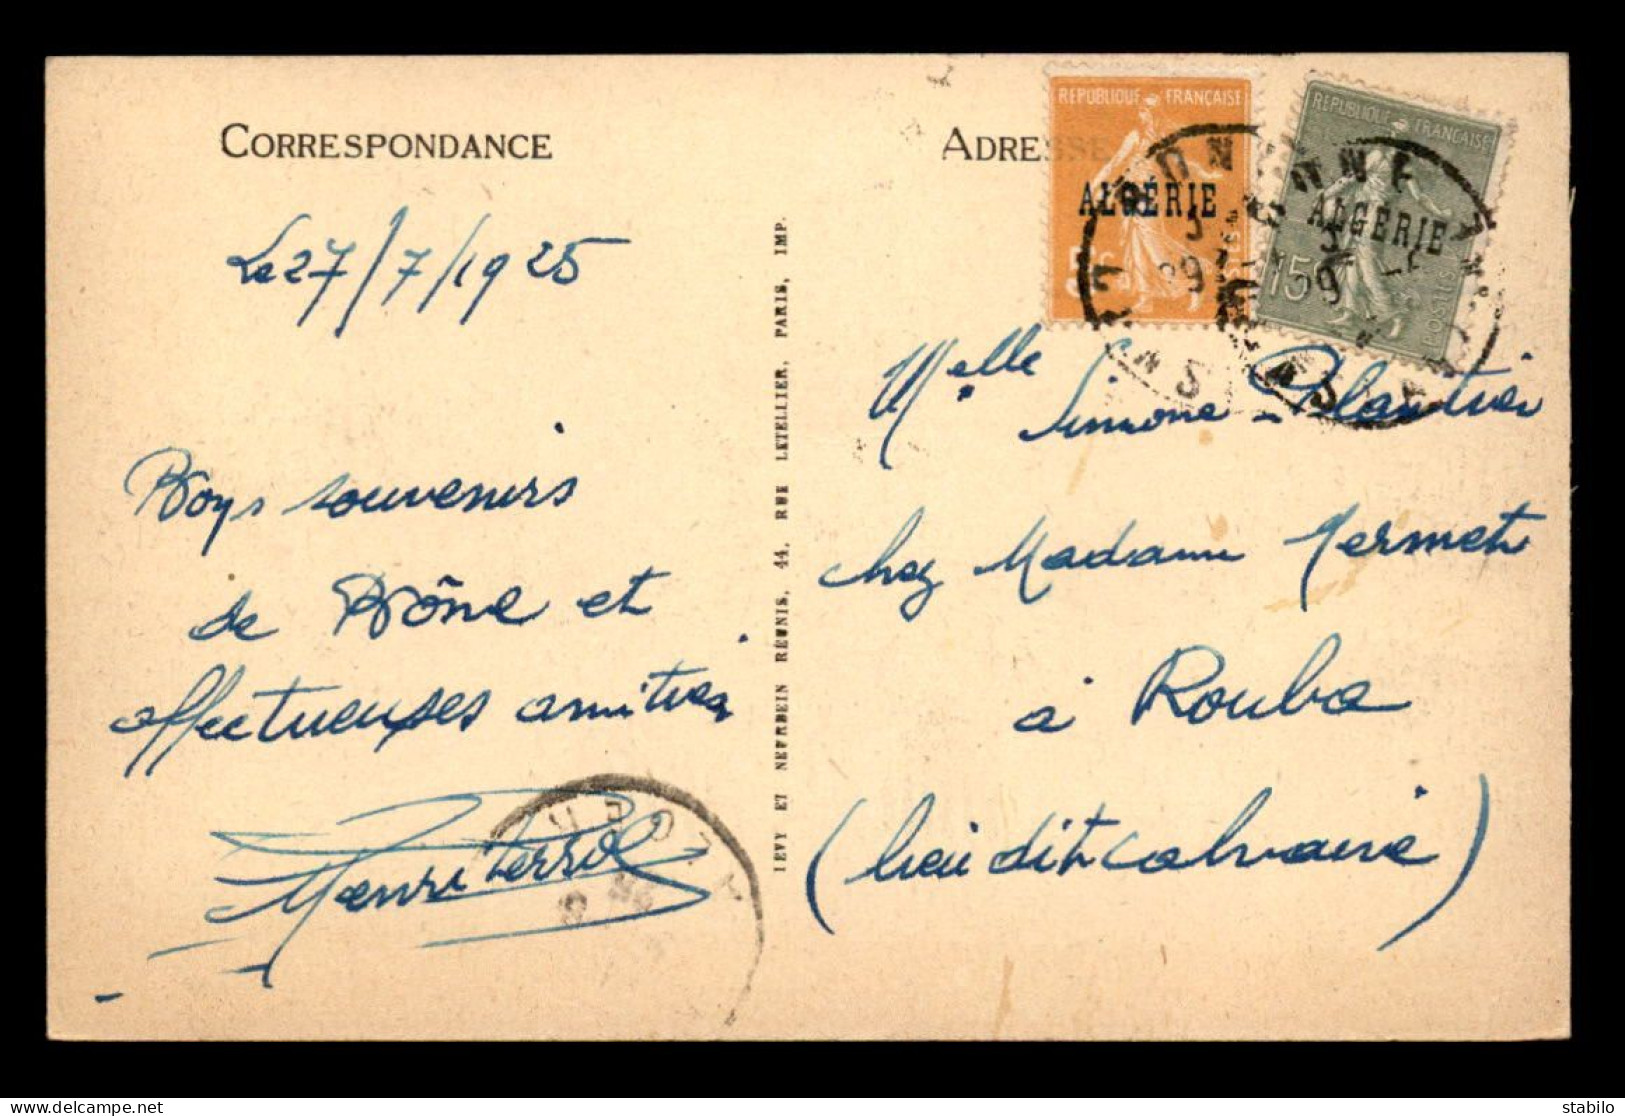 CORRESPONDANCE
Le 27/7/1925
Bons souvenirs
de Bône et
affectueuses amitiés
Henri
LEVY ET NEURDEIN RÉUNIS, 44, RUE LETELLIER, PARIS, IMP.
ADRESSE
REPUBLIQUE FRANÇAISE
ALGÉRIE
5c
REPUBLIQUE FRANÇAISE
ALGÉRIE
15c
POSTES
BONE
BONE
Melle
Simone Plantier
chez Madame Mermet
à Rouba
(lieu dit Calvaire)
ALGER
stabilo | delcampe.net